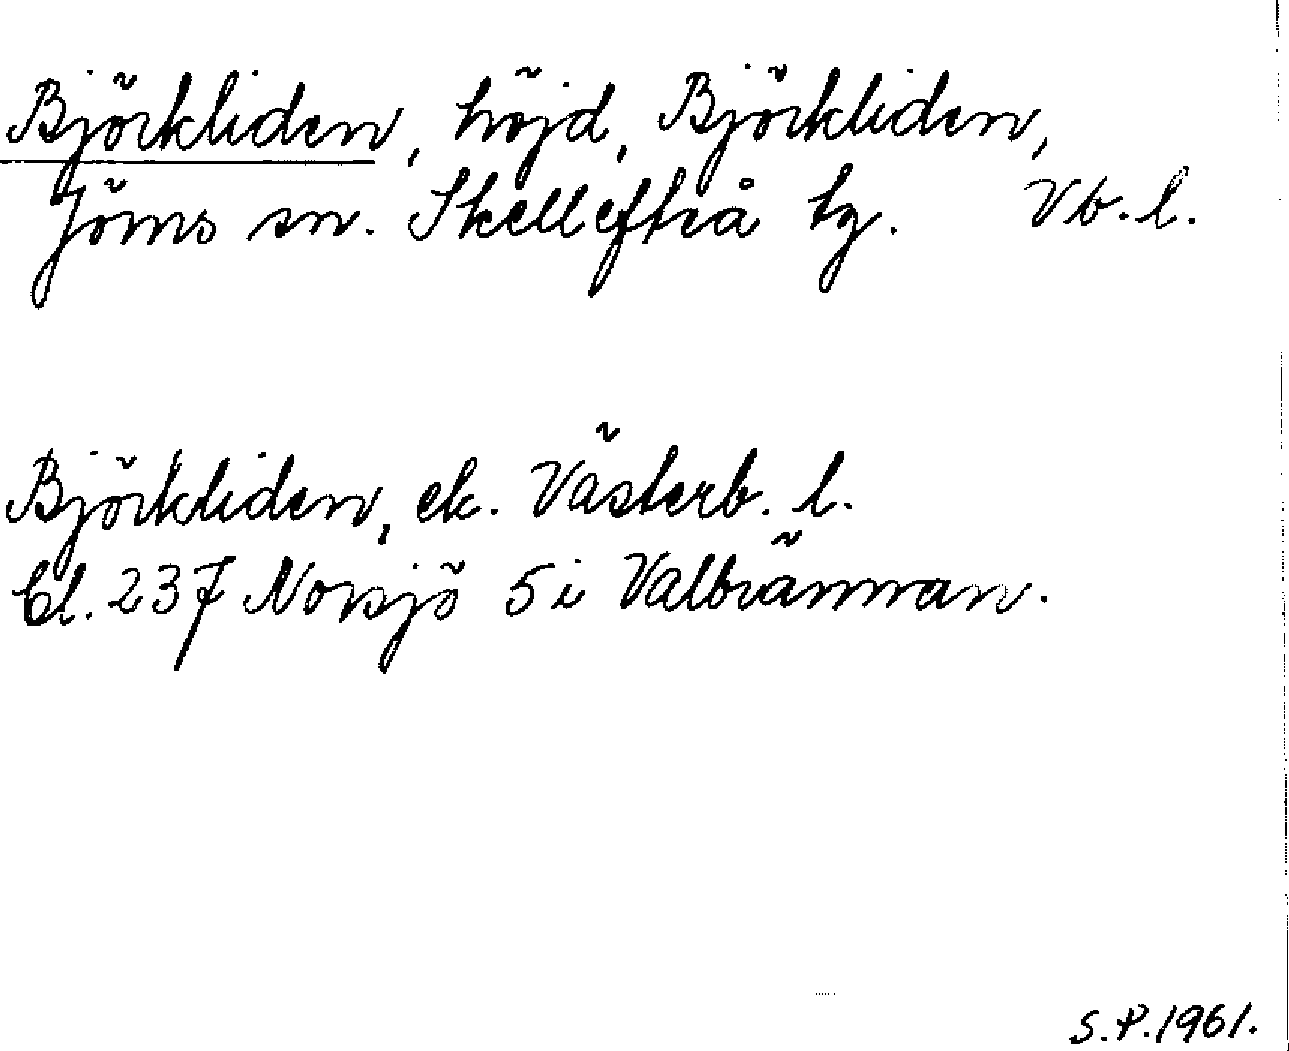 Björkliden, höjd, Björkliden,
Jörns sn. Skellefteå tg. Vb. l.
Björkliden, ek. Västerb. l.
Bl. 237 Norsjö 5 i Valbrännan.
S.P. 1961.